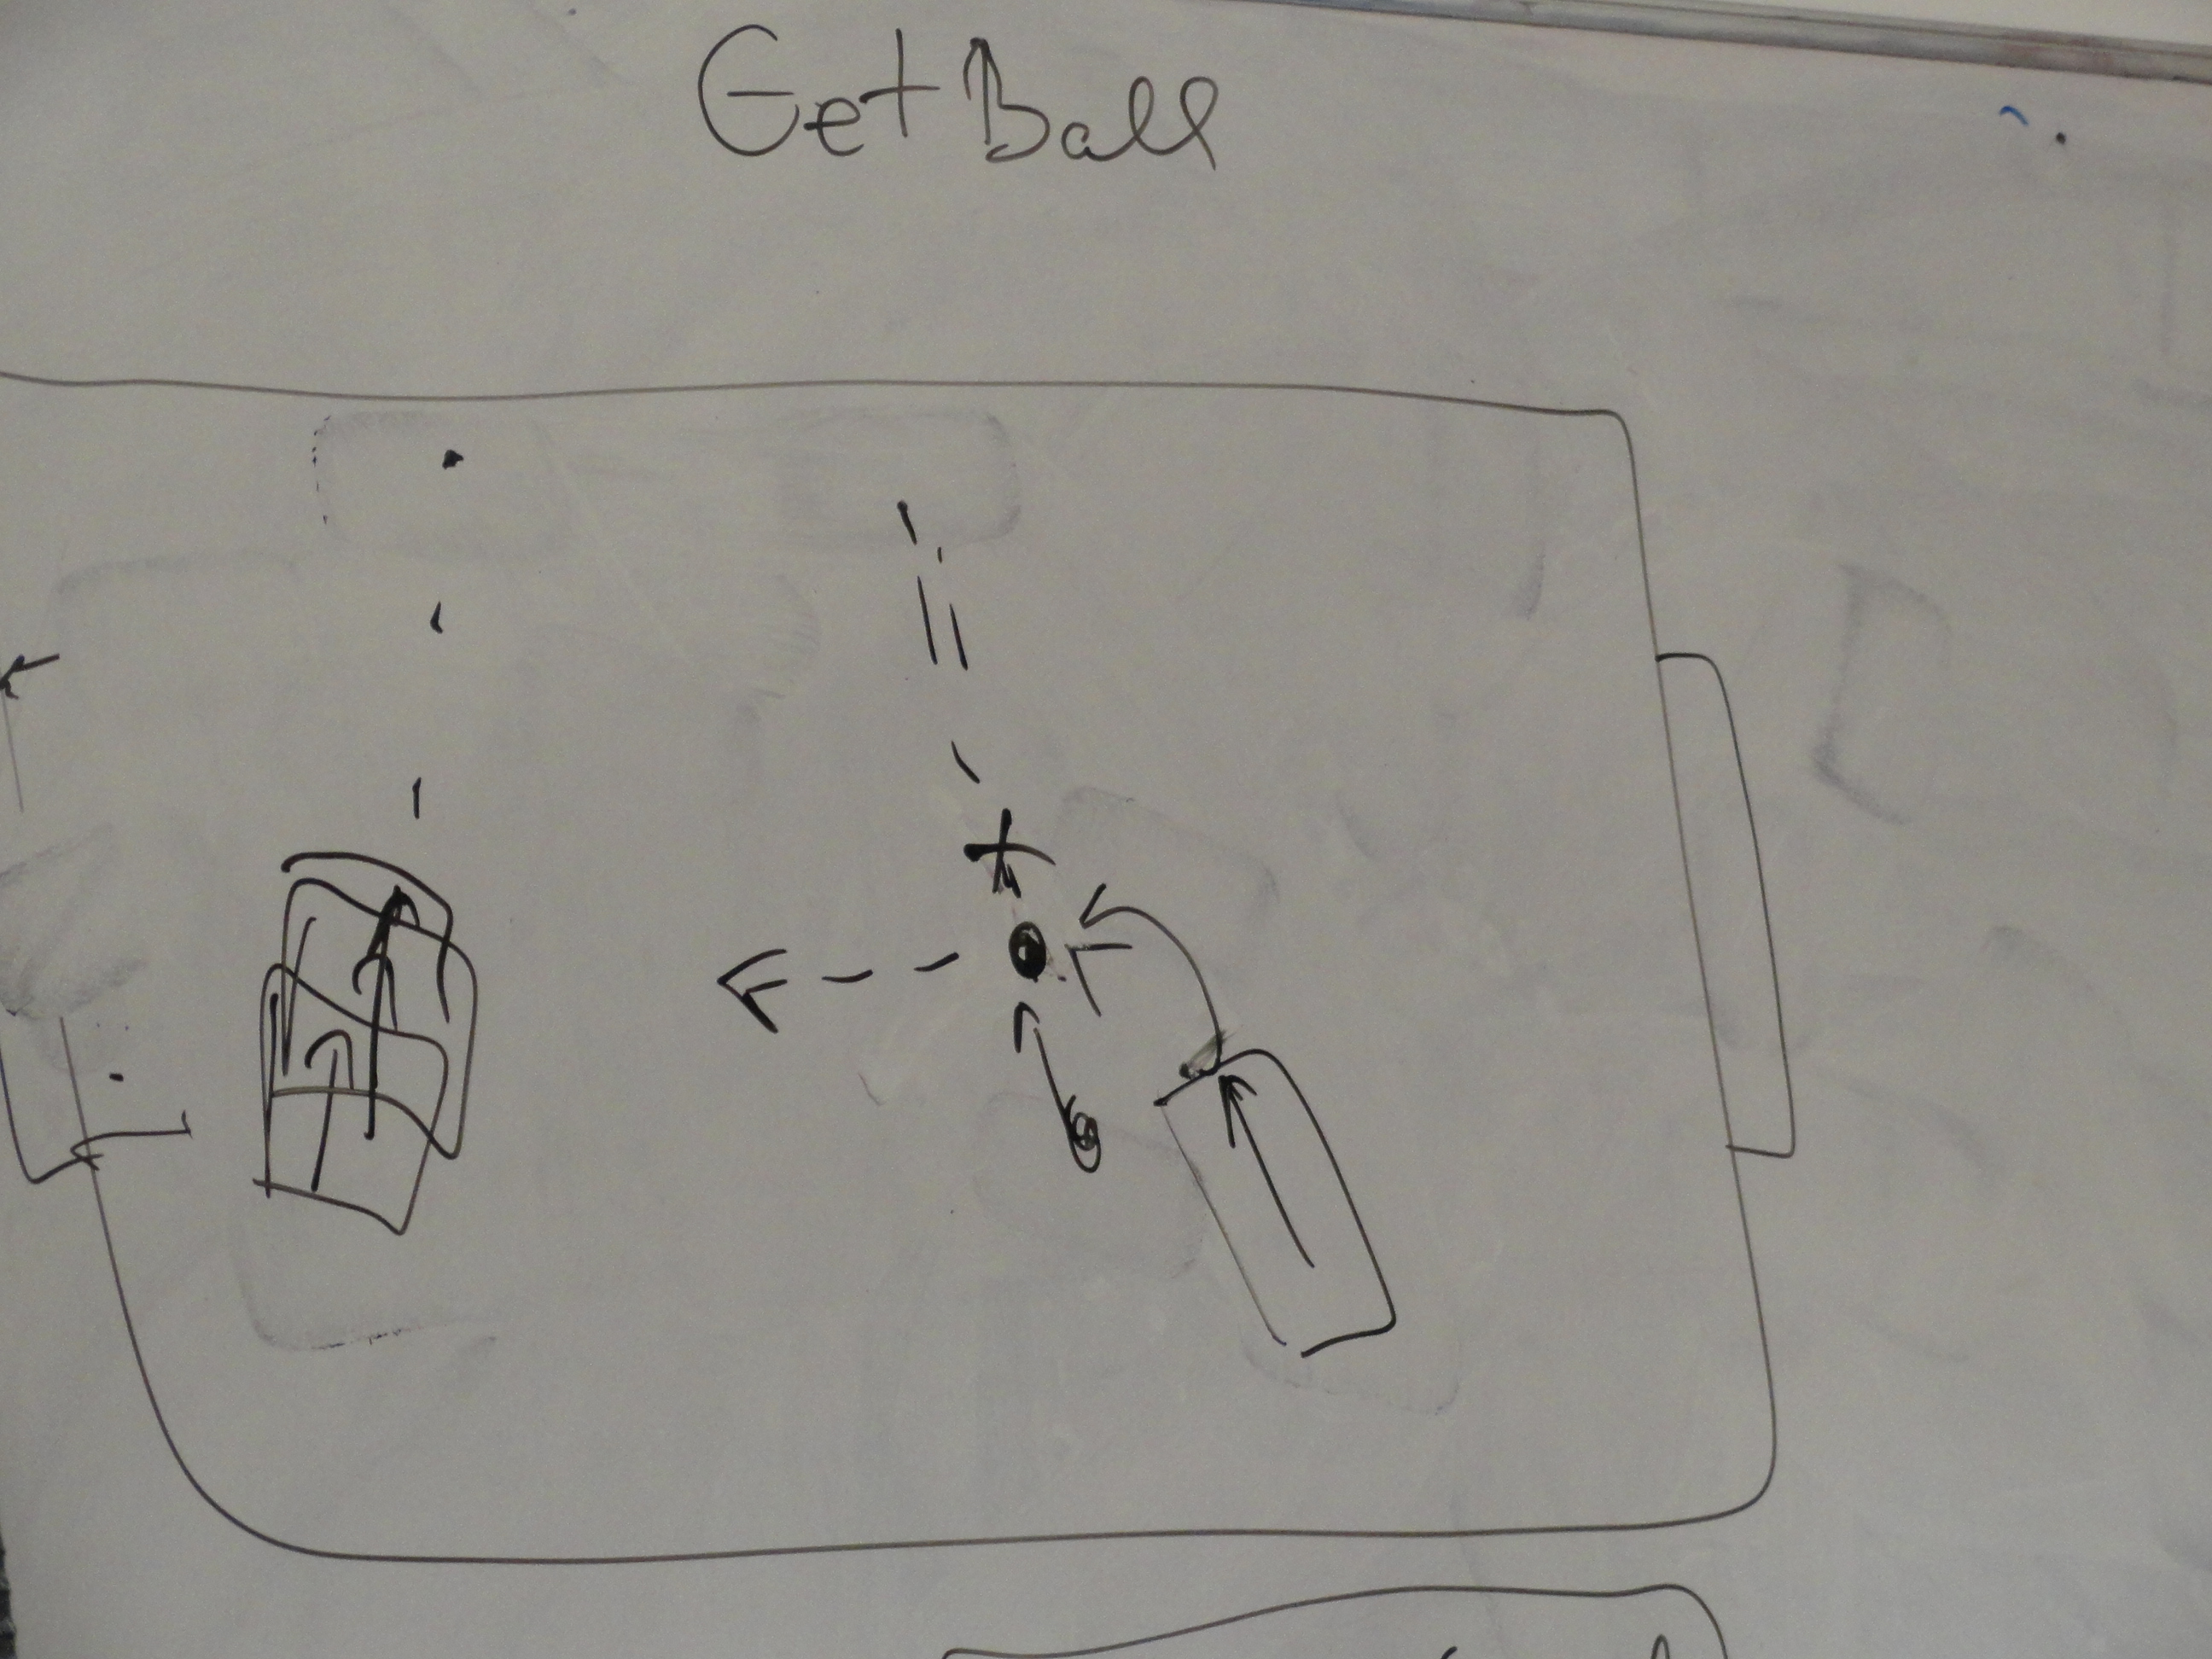 Get Ball